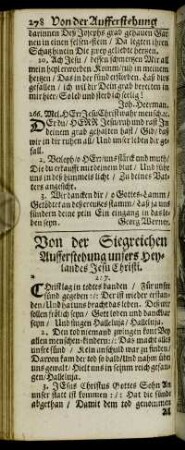 278 Von der Aufferstehung
darinnen Des Josephs grab gehauen War
neu in einen felsen-stein / Da legten ihren
Schatz hinein Die zwey geliebte herzen.
10. Ach Jesu / dessen schmertzen Mir all
mein heyl erworben Kom / ruh in meinem
hertzen / Das in der sünd erstorben. Laß dirs
gefallen / ich wil dir Dein grab bereiten in
mir hier / So leb und sterb ich selig!
Joh. Heerman.
166. Mel. HErr Jesu Christ wahr mensch ꝛc.
DErdu / HERR Jesu ruh und rast In
deinem grab gehalten hast / Gib / daß
wir in dir ruhen all / Und unser leben dir ge-
fall.
2. Verleyh o HErr / uns stärck und muth /
Die du erkaufft mit deinem blut / Und führ
uns in deß himmels licht / Zu deines Vat-
ters angesicht.
3. Wir dancken dir / o Gottes-Lamm /
Getödtet an des creutzes stamm / Laß ja uns
sündern deine pein Ein eingang in das le-
ben seyn. Georg Werner.
Von der Siegreichen
Aufferstehung unsers Hey-
landes Jesu Christi.
167.
CHrist lag in todtes banden / Für unsre
sünd gegeben :/: Der ist wieder erstan-
den / Und hat uns bracht das leben. Des wir
sollen frölich seyn / Gott loben und danckbar
seyn / Und singen Halleluja / Halleluja.
2. Den tod niemand zwingen kont Bey
allen menschen-kindern :/: Das macht alles
unsre sünd / Kein unschuld war zu finden /
Darvon kam der tod so bald / Und nahm über
uns gewalt / Hielt uns in seinem reich gefan-
gen / Halleluja.
3. JEsus Christus Gottes Sohn An
unser statt ist kommen :/: Hat die sünde
abgethan / Damit dem tod genommen